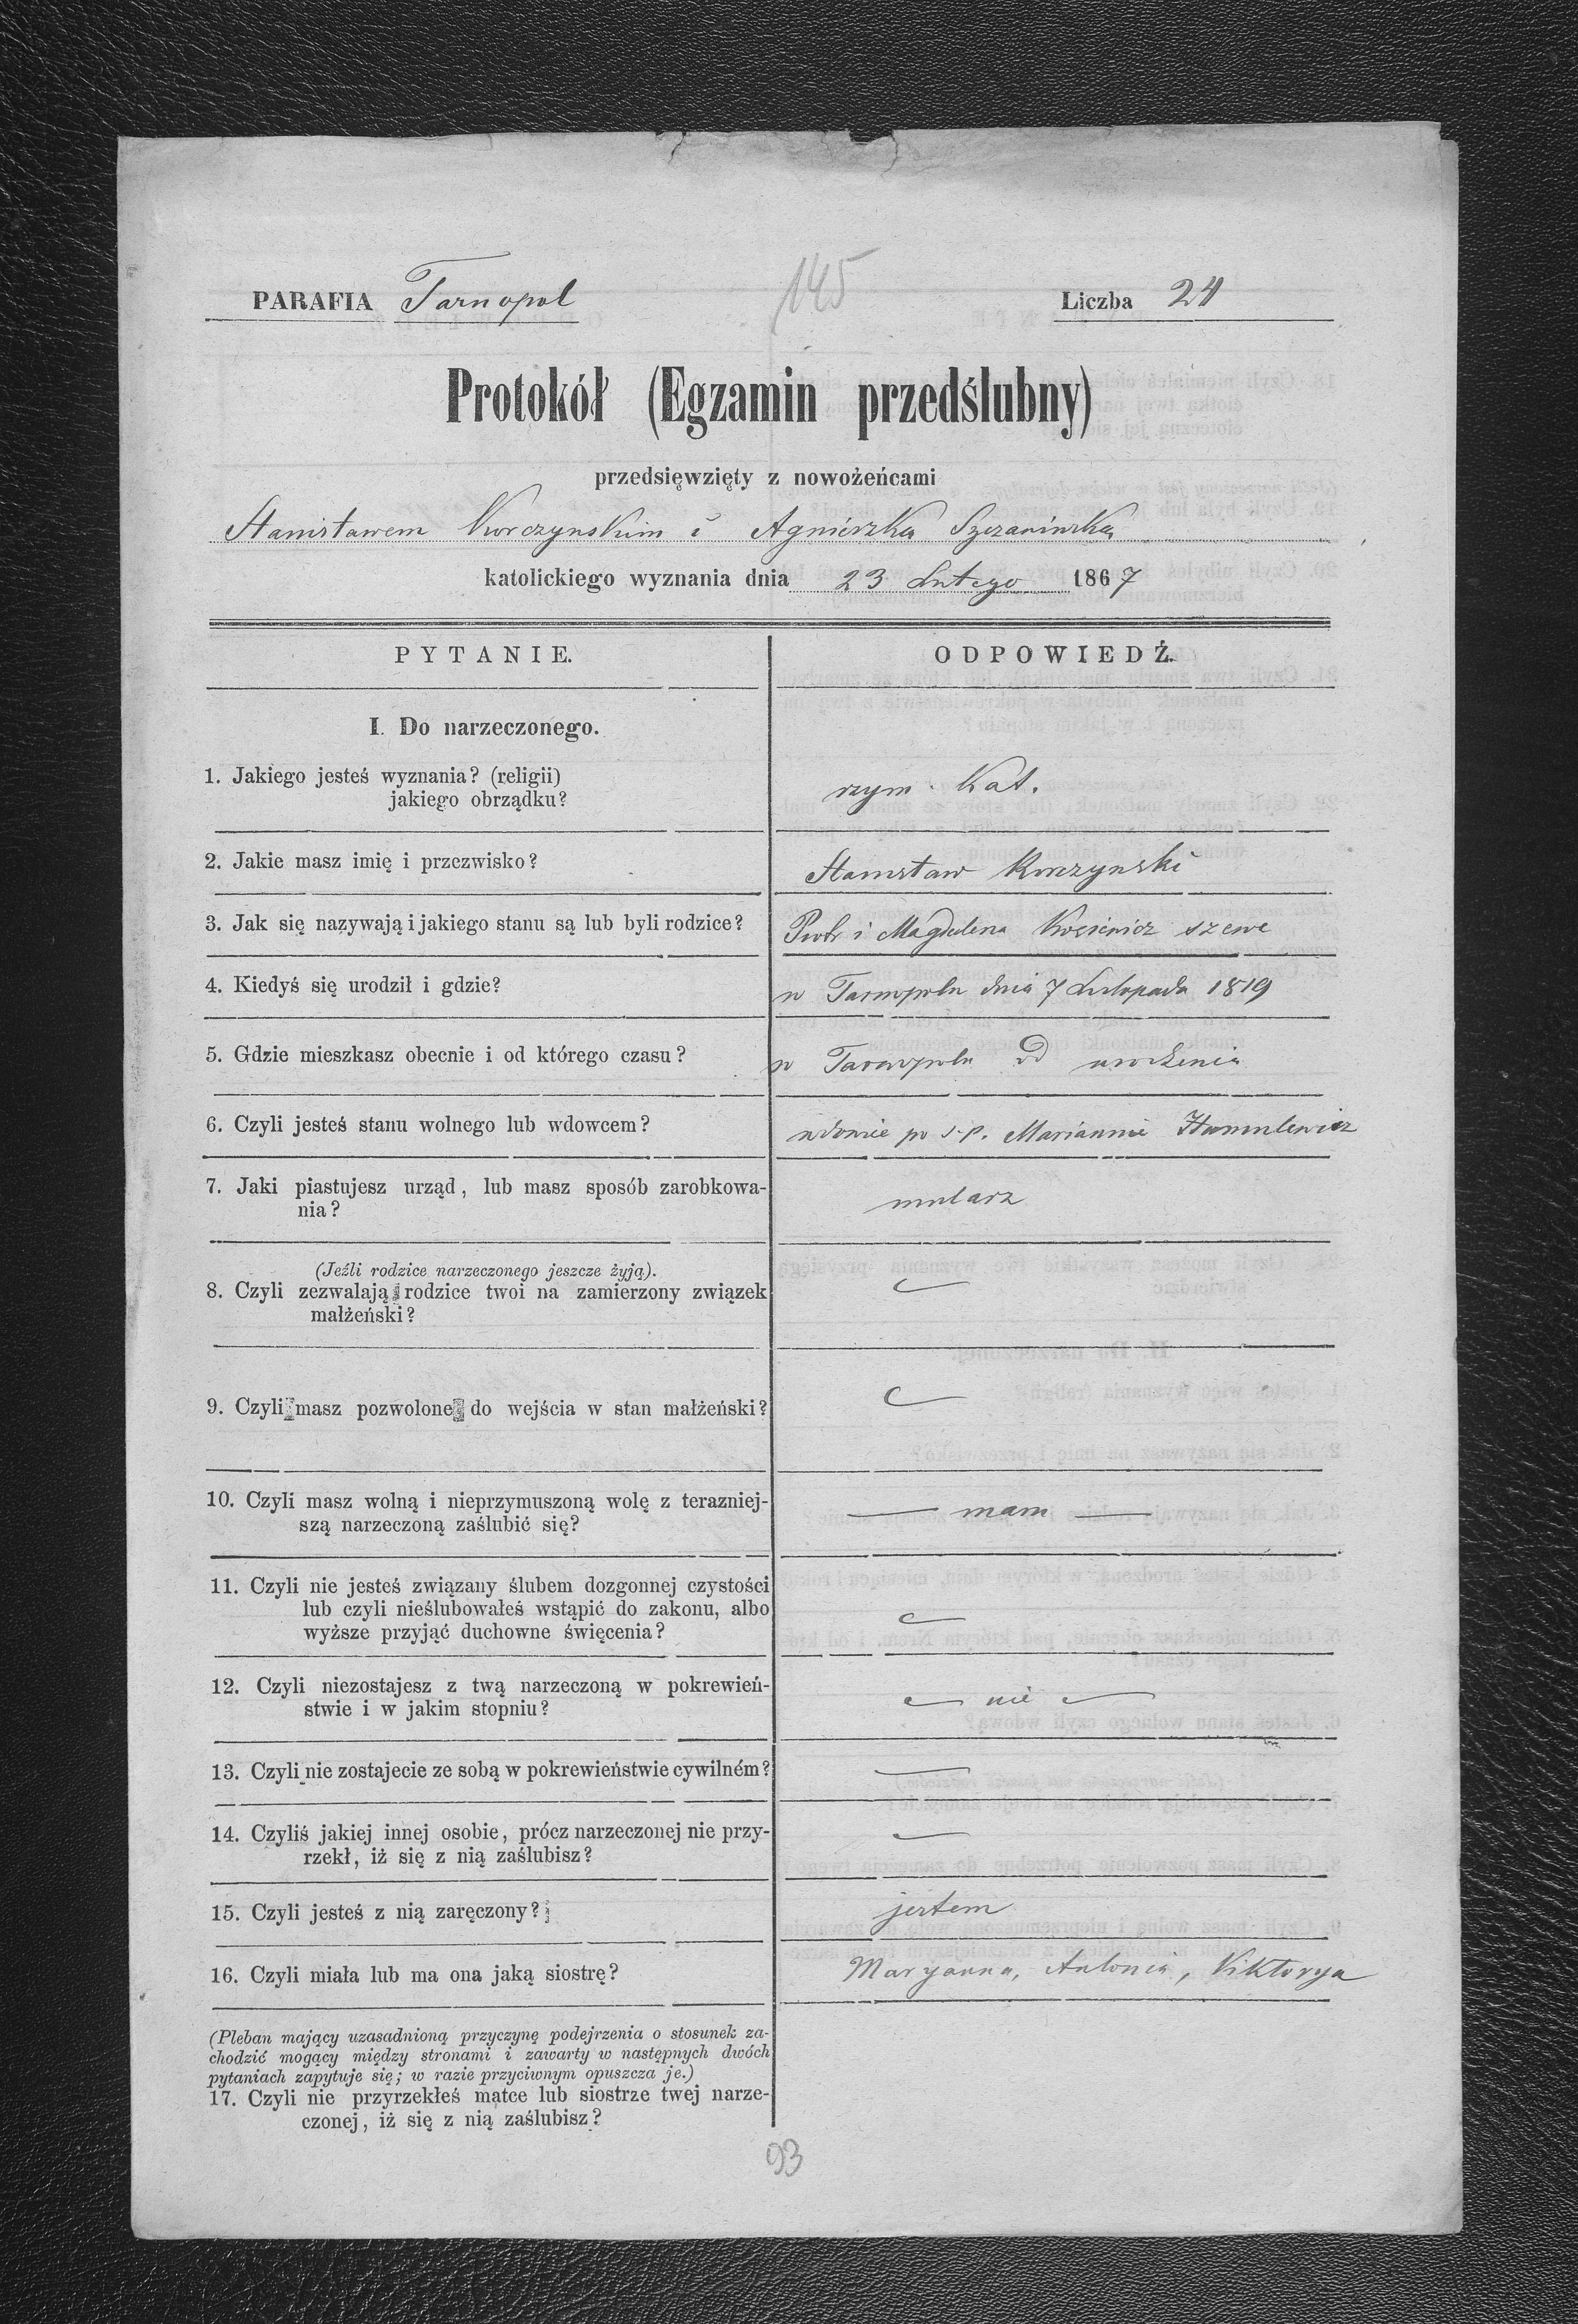 145
PARAFIA Tarnopol Liczba 24
Protokół (Egzamin przedślubny)
przedsięwzięty z nowożeńcami
Stanisławem Korczynskim i Agnieszką
katolickiego wyznania dnia 23 Lutego 1867
PYTANIE. ODPOWIEDŹ.
I. Do narzeczonego.
1. Jakiego jesteś wyznania? (religii)
jakiego obrządku?
rzym. Kat.
2. Jakie masz imię i przezwisko?
Stanisław Korczynski
3. Jak się nazywają i jakiego stanu są lub byli rodzice?
Piotr i Magdalena szewc
4. Kiedyś się urodził i gdzie?
w Tarnopolu dnia 7 Listopada 1819
5. Gdzie mieszkasz obecnie i od którego czasu?
w Tarnopolu od urodzenia
6. Czyli jesteś stanu wolnego lub wdowcem?
wdowiec po s.p. Mariannie Hamulewicz
7. Jaki piastujesz urząd, lub masz sposób zarobkowa-
nia?
mularz
(Jeźli rodzice narzeczonego jeszcze żyją).
8. Czyli zezwalają rodzice twoi na zamierzony związek
małżeński?
9. Czyli masz pozwolone do wejścia w stan małżeński?
10. Czyli masz wolną i nieprzymuszoną wolę z terazniej-
szą narzeczoną zaślubić się?
— mam —
11. Czyli nie jesteś związany ślubem dozgonnej czystości
lub czyli nieślubowałeś wstąpić do zakonu, albo
wyższe przyjąć duchowne święcenia?
12. Czyli niezostajesz z twą narzeczoną w pokrewień-
stwie i w jakim stopniu?
nie
13. Czyli nie zostajecie ze sobą w pokrewieństwie cywilném?
14. Czyliś jakiej innej osobie, prócz narzeczonej nie przy-
rzekł, iż się z nią zaślubisz?
15. Czyli jesteś z nią zaręczony?
jestem
16. Czyli miała lub ma ona jaką siostrę?
Maryanna, Antonia, Viktorya
(Pleban mający uzasadnioną przyczynę podejrzenia o stosunek za-
chodzić mogący między stronami i zawarty w następnych dwóch
pytaniach zapytuje się; w razie przyciwnym opuszcza je.)
17. Czyli nie przyrzekłeś matce lub siostrze twej narze-
czonej, iż się z nią zaślubisz?
93